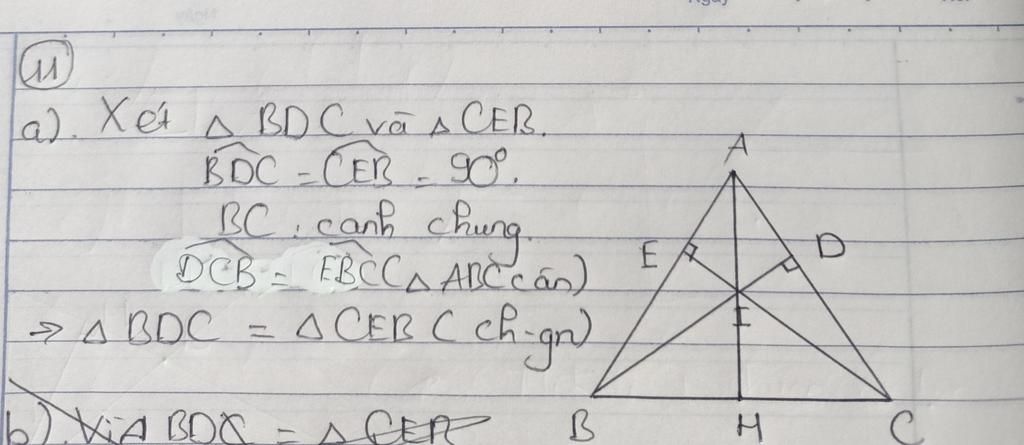 11
a). Xét △ BDC và △ CEB.
BDC = CEB = 90°.
BC : cạnh chung.
DCB = EBC (△ ABC cân)
⇒ △ BDC = △ CEB ( ch-gn)
b) Vì △ BDC = △ CEB
A
E
D
I
B
H
C